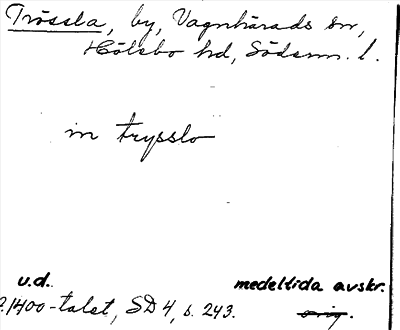 Trössla, by, Vagnhärads sn,
Hölebo hd, Söderm. l.
in trysslo
u.d. medeltida avskr.
1400-talet, SD 4, s. 243. orig.